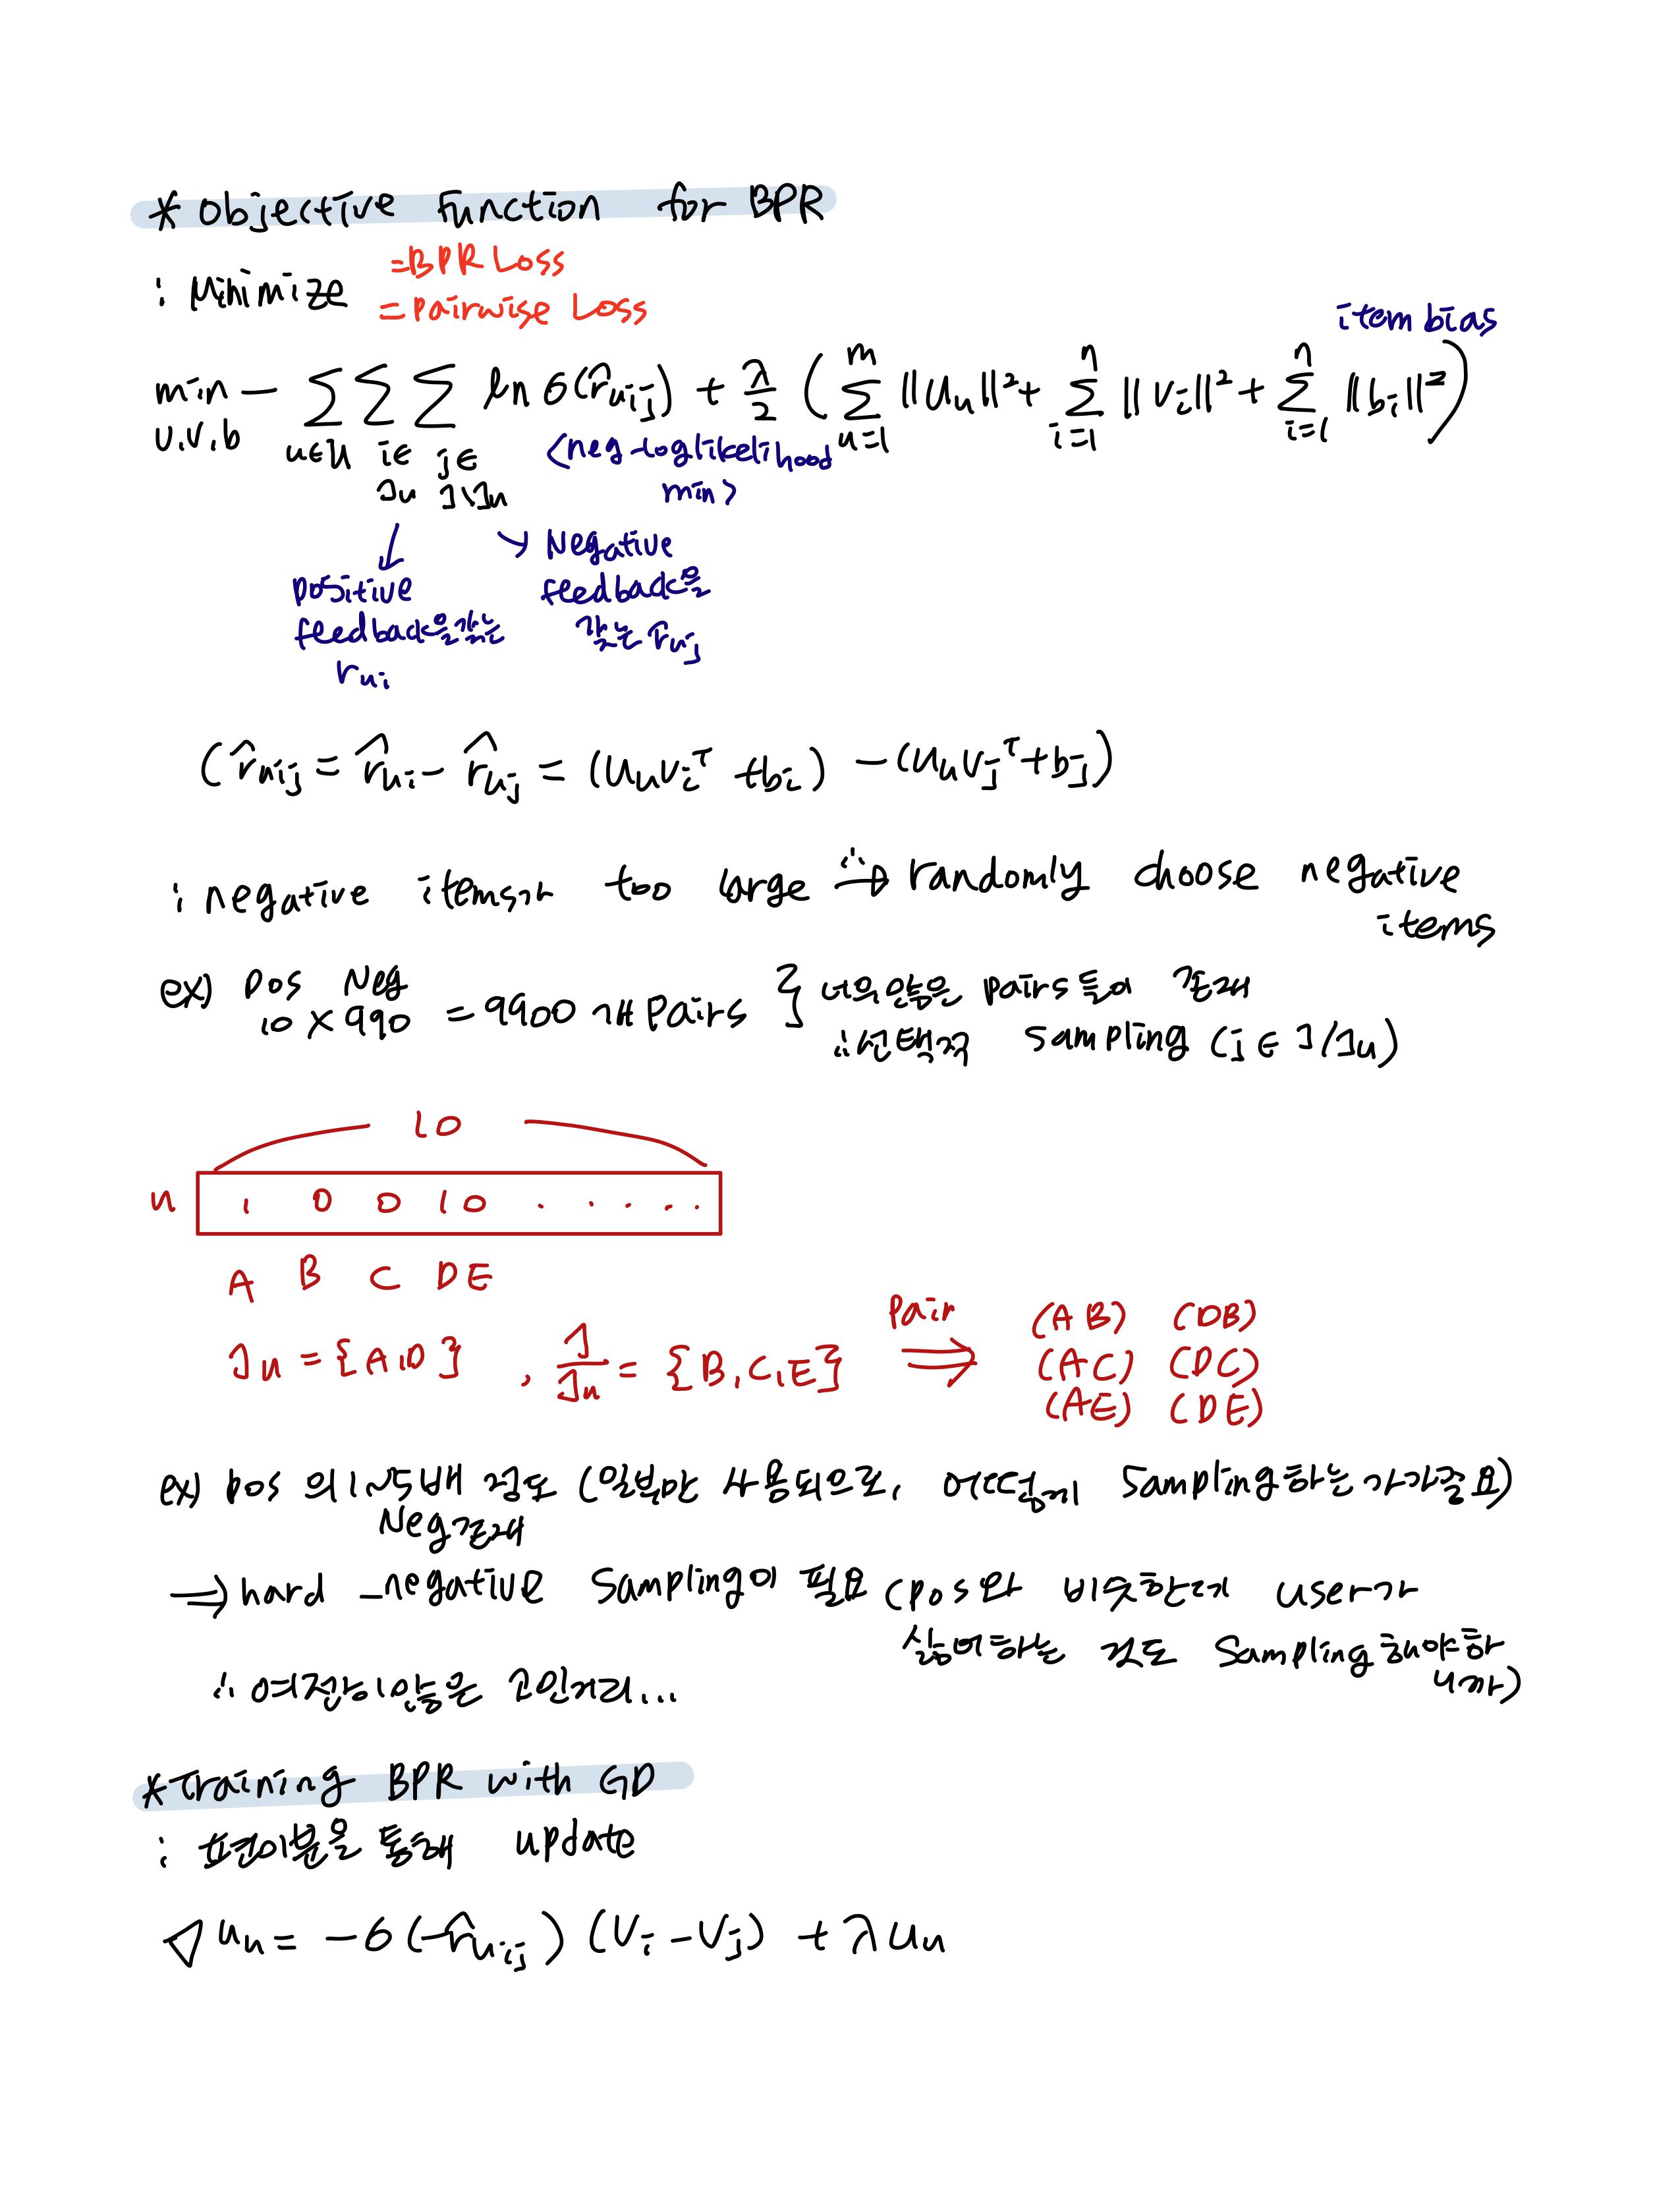 * Objective Function for BPR
: Minimize
= BPR Loss
= Pairwise Loss
item bias
min - ΣΣΣ ln σ(r̂uij) + λ/2 (Σ ||Uu||² + Σ ||Vi||² + Σ ||bi||²)
U.V.b u∈U i∈Iu j∈I\Iu m u=1 n i=1 n i=1
<neg-loglikelihood min>
positive feedback을 갖는 rui
Negative feedback을 갖는 ruj
(r̂uij = r̂ui - r̂uj = (UuVi^T + bi) - (UuVj^T + bj)
: negative items가 too large ∴⇒ randomly choose negative items
ex) pos 10 × Neg 990 = 9900개 Pairs } 너무 많은 pairs들이 존재
∴ 선택적 sampling (j ∈ I/Iu)
10
u 1 0 0 1 0 . . . . .
A B C D E
Iu = {A,D} , I/Iu = {B,C,E} Pair ⇒ (AB) (DB)
(AC) (DC)
(AE) (DE)
ex) pos 의 1~5배 정도 (일부만 사용되므로, 어떻게 Sampling하는가가 중요)
Neg 존재
→ hard-negative Sampling이 필요 (pos와 비슷한데 user가
싫어하는 것도 Sampling해야하
니까)
∴ 여전히 많은 고민거리...
*Training BPR with GD
: 편미분을 통해 update
▽uu = -σ(-r̂uij) (Vi - Vj) + λUu